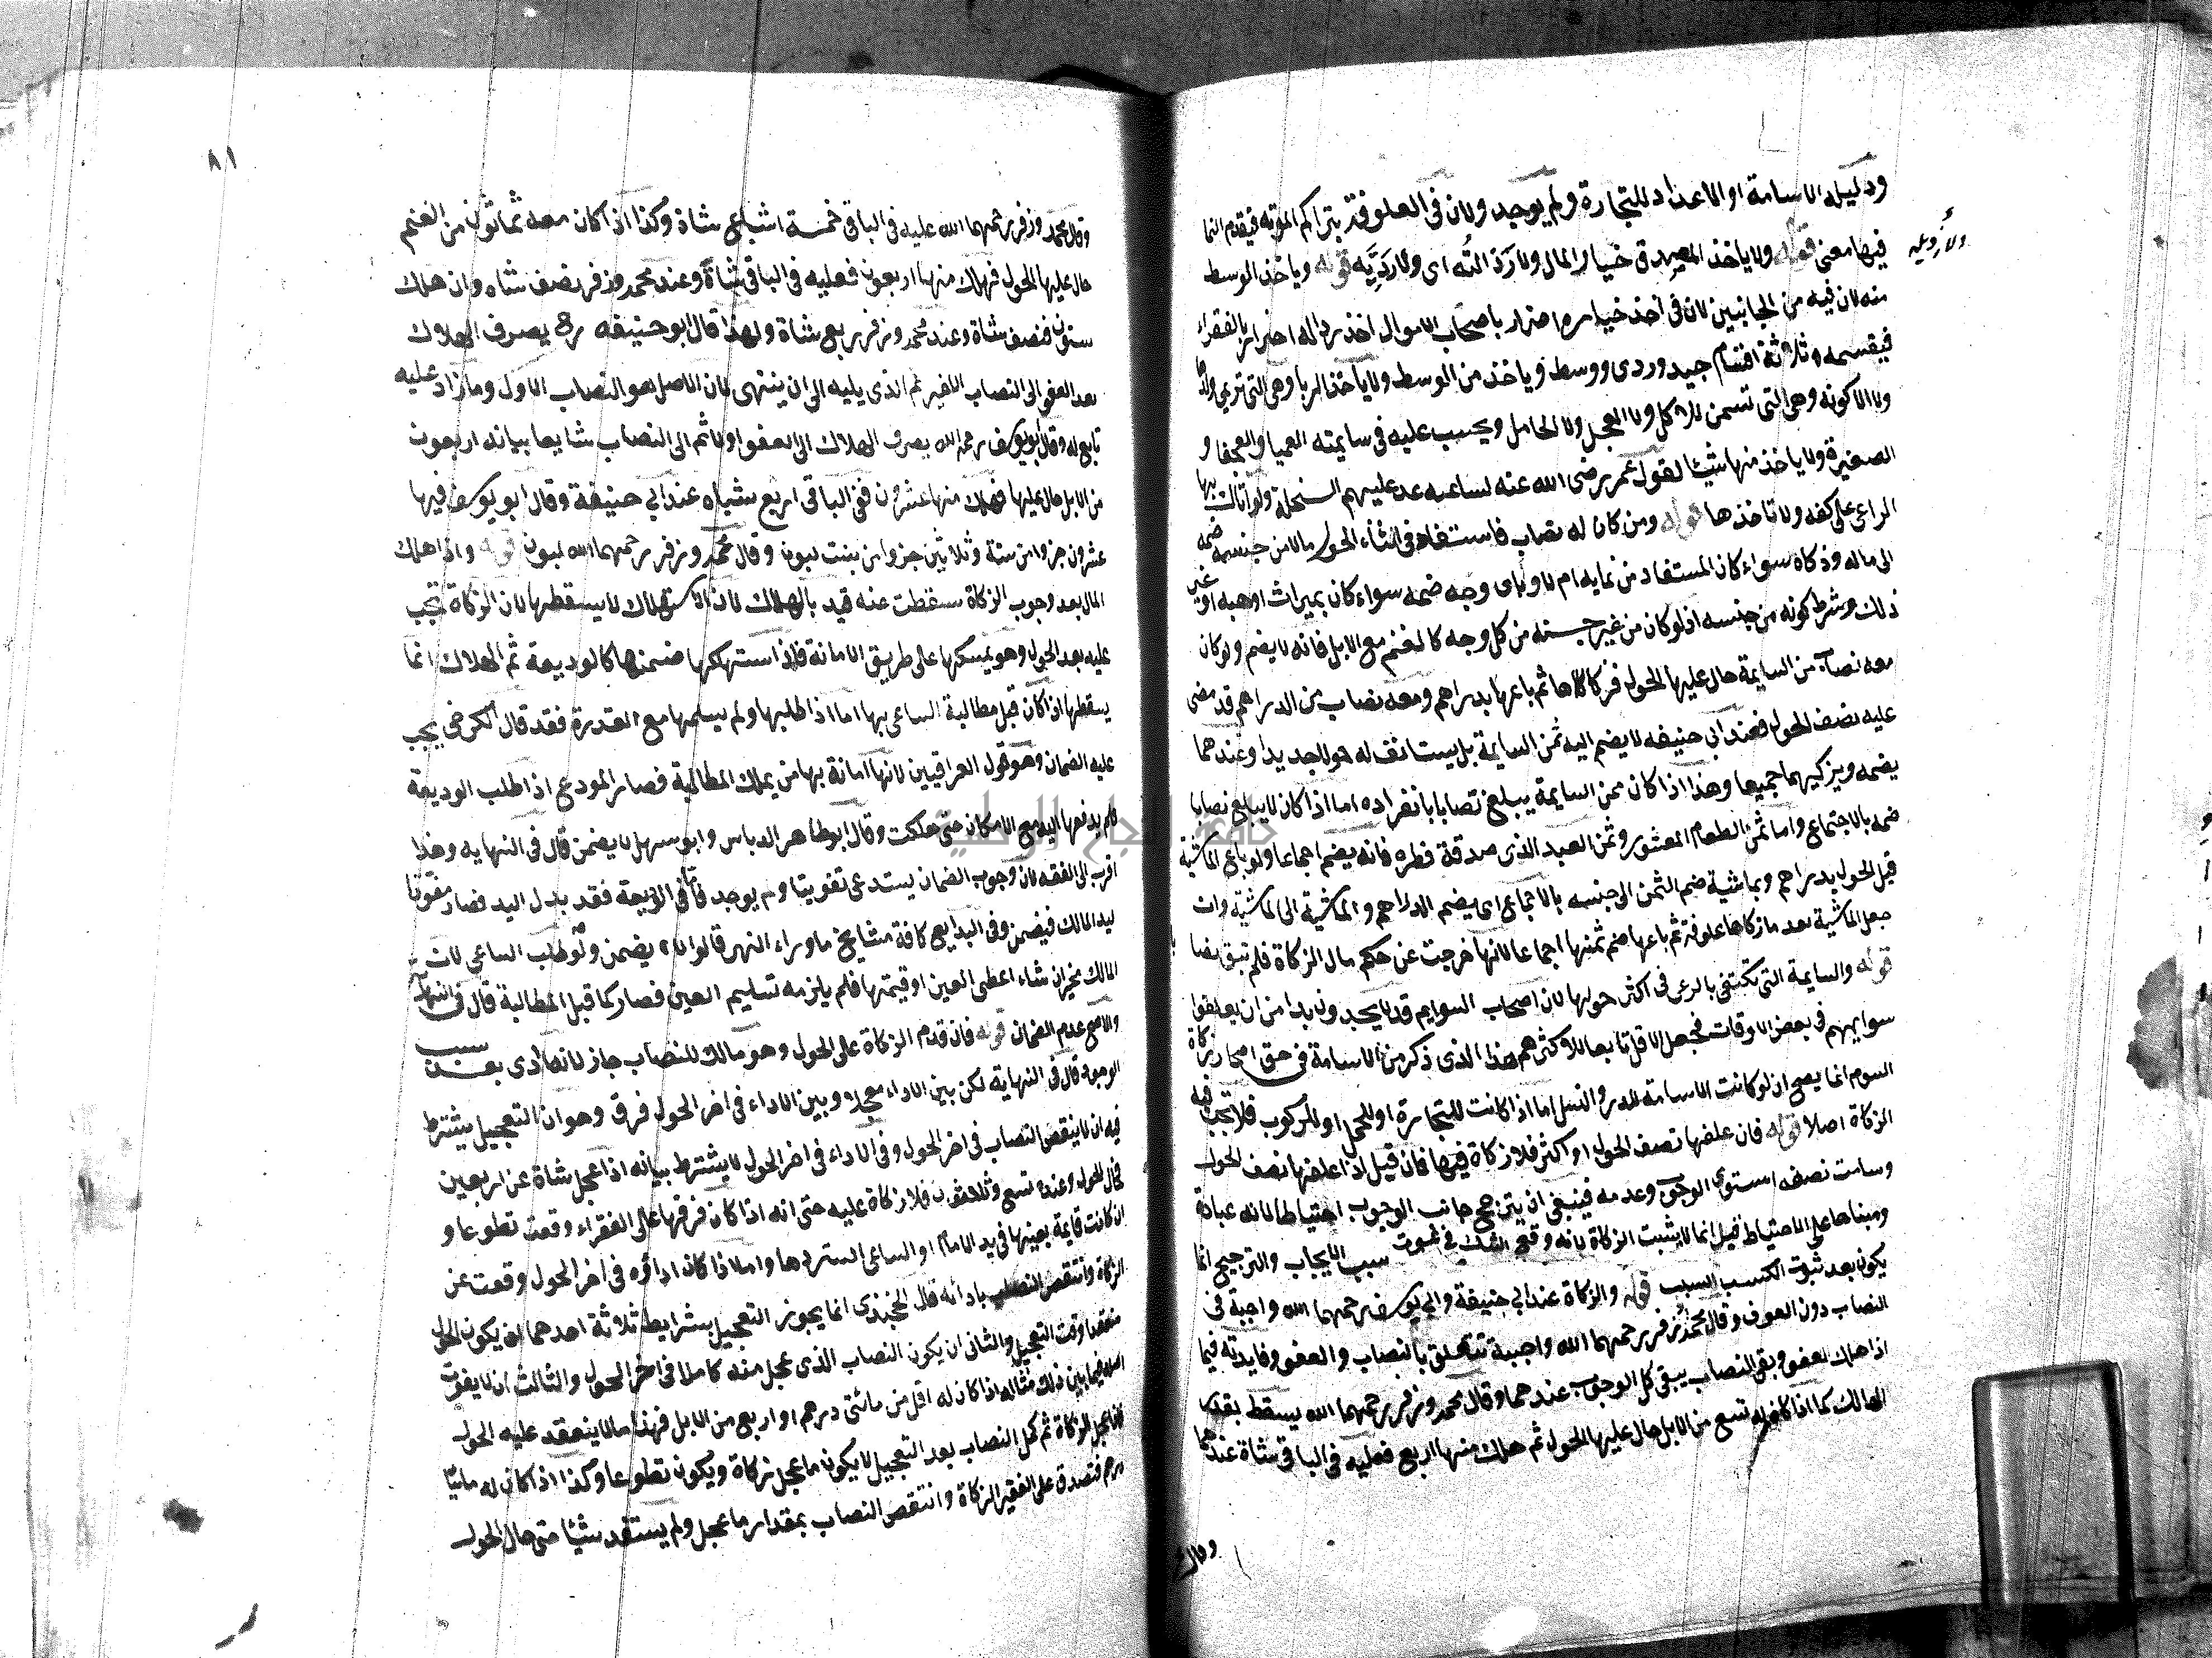 ودليله الاسامة او الاعداد للتجارة ولم يوجد ولان في العلوفة تتراكم المؤنة فيقدم النما
ولا رديه
فيها معنى قوله ولا ياخذ المصدق خيار المال ولا رذالته اي ولا رديه قوله وياخذ الوسط
منه لان فيه من الجانبين لان في اخذ خياره اضرار باصحاب الاموال اخذ رذاله اضرار بالفقراء
فيقسمه ثلاثة اقسام جيد وردى ووسط وياخذ من الوسط ولا ياخذ الربا وهي التي تربي ولدها
ولا الاكولة وهي التي تسمن للاكل ولا الفحل ولا الحامل ويحسب عليه في سايمته العميا والعجفا و
الصغيرة ولا ياخذ منها شيئا لقول عمر رضى الله عنه لساعيه عد عليهم السخلة ولو اتاك بها
الراعي على كفه ولا تاخذها قوله ومن كان له نصاب فاستفاد في اثناء الحول مالا من جنسه ضمه
الى ماله وزكاه سواء كان المستفاد من نمايه ام لا وباى وجه ضمه سواء كان بميراث او هبه او غير
ذلك وشرط كونه من جنسه اذ لو كان من غير جنسه من كل وجه كالغنم مع الابل فانه لا يضم ولو كان
معه نصاب من السايمة حال عليها الحول فزكاها ثم باعها بدراهم ومعه نصاب من الدراهم قد مضى
عليه نصف الحول فعند ابي حنيفه لا يضم اليه ثمن السايمة بل يستانف له حولا جديدا وعندهما
يضمه ويزكيهما جميعا وهذا اذا كان ثمن السايمة يبلغ نصابا بانفراده اما اذا كان لا يبلغ نصابا
ضمه بالاجماع واما ثمن الطعام المعشور وثمن العبد الذى صدقة فطره فانه يضم اجماعا ولو باع الماشية
قبل الحول بدراهم وبماشية ضم الثمن الى جنسه بالاجماع اي يضم الدراهم والماشية الى الماشية وان
جعل الماشية بعد ما زكاها علوفة ثم باعها ضم ثمنها اجماعا لانها خرجت عن حكم مال الزكاة فلم تبق نصا
قوله والسايمة التي تكتفى بالرعى في اكثر حولها لان اصحاب السوايم قد لا يجدون بدا من ان يعلفوا
سوايمهم في بعض الاوقات فجعل الاقل تابعا للاكثر هذا الذى ذكر من الاسامة في حق ايجاب زكاة
السوم انما يصح ان لو كانت الاسامة للدر والنسل اما اذا كانت للتجارة او للحمل او للركوب فلا تجب فيه
الزكاة اصلا قوله فان علفها نصف الحول او اكثر فلا زكاة فيها فان قيل اذا علفها نصف الحول
وسامت نصفه استوى الوجوب وعدمه فينبغي ان يترجح جانب الوجوب احتياطا لانه عبادة
ومبناها على الاحتياط قيل انما لا يثبت الزكاة لانه وقع الشك في ثبوت سبب الايجاب والترجيح انما
يكون بعد ثبوت السبب قوله والزكاة عند ابي حنيفة وابي يوسف رحمهما الله واجبة في
النصاب دون العفو وقال محمد وزفر رحمهما الله واجبة تتعلق بالنصاب والعفو وفايدته فيما
اذا هلك العفو وبقى النصاب يبقى كل الوجوب عندهما وقال محمد وزفر رحمهما الله يسقط بقدر
الهالك كما اذا كان له تسع من الابل حال عليها الحول ثم هلك منها اربع فعليه في الباقي شاة عندهما
وقال
٨١
وقال محمد وزفر رحمهما الله عليه في الباقي خمسة اتساع شاة وكذا اذا كان معه ثمانون من الغنم
حال عليها الحول فهلك منها اربعون فعليه في الباقي شاة وعند محمد وزفر نصف شاه وان هلك
ستون فنصف شاة وعند محمد وزفر ربع شاة ولهذا قال ابو حنيفه رح يصرف الهلاك
بعد العفو الى النصاب الاخير ثم الذى يليه الى ان ينتهى لان الاصل هو النصاب الاول وما زاد عليه
تابع له وقال ابو يوسف رحمه الله يصرف الهلاك الى العفو اولا ثم الى النصاب شايعا بيانه اربعون
من الابل حال عليها فهلك منها عشرون ففي الباقي اربع شياه عند ابي حنيفة وقال ابو يوسف فيها
عشرون جزوا من ستة وثلاثين جزوا من بنت لبون وقال محمد وزفر رحمهما الله لبون قوله واذا هلك
المال بعد وجوب الزكاة سقطت عنه قيد بالهلاك لان الاستهلاك لا يسقطها لان الزكاة تجب
عليه بعد الحول وهو يمسكها على طريق الامانة فاذا استهلكها ضمنها كالوديعة ثم الهلاك انما
يسقطها اذا كان قبل مطالبة الساعى بها اما اذا طلبها ولم يسلمها مع القدرة فقد قال الكرخى يجب
عليه الضمان وهو قول العراقيين لانها امانة بها من يملك المطالبة فصار المودع اذا طلب الوديعة
فلم يدفعها اليه مع الامكان حتى هلكت وقال ابو طاهر الدباس وابو سهل لا يضمن قال في النهايه وهذا
اقرب الى الفقه لان وجوب الضمان يستدعى تفويتا ولم يوجد فاما في الوديعة فقد بدل اليد فصار مفوتا
ليد المالك فيضمن وفي البدايع كافة مشايخ ما وراء النهر قالوا لا يضمن ولو طلب الساعى لان
المالك مخير ان شاء اعطى العين او قيمتها فلم يلزمه تسليم العين فصار كما قبل المطالبة قال في النهاية
والاصح عدم الضمان قوله فان قدم الزكاة على الحول وهو مالك للنصاب جاز لانه ادى بعد سبب
الوجوب قال في النهاية لكن بين الاداء معجلا وبين الاداء في اخر الحول فرق وهو ان التعجيل يشترط
فيه ان لا ينقص النصاب في اخر الحول وفي الاداء في اخر الحول لا يشترط بيانه اذا عجل شاة عن اربعين
فحال الحول وعنده تسع وثلاثون فلا زكاة عليه حتى انه اذا كان فرقها على الفقراء وقعت تطوعا و
ان كانت قايمة بعينها في يد الامام او الساعى استردها واما اذا كان اداؤه في اخر الحول وقعت عن
الزكاة وانتقص النصاب بادائه قال الخجندى انما يجوز التعجيل بشرايط ثلاثة احدهما ان يكون الحول
منعقدا وقت التعجيل والثانى ان يكون النصاب الذى عجل منه كاملا في اخر الحول والثالث ان لا يفوت
اصله فيما بين ذلك مثاله اذا كان له اقل من مائتى درهم او اربع من الابل فهذا مالا ينعقد عليه الحول
فاذا عجل الزكاة ثم كمل النصاب بعد التعجيل لا يكون ما عجل زكاة ويكون تطوعا وكذا اذا كان له مائتا
درهم فتصدق على الفقير الزكاة وانتقص النصاب بمقدار ما عجل ولم يستفد شيئا حتى حال الحول